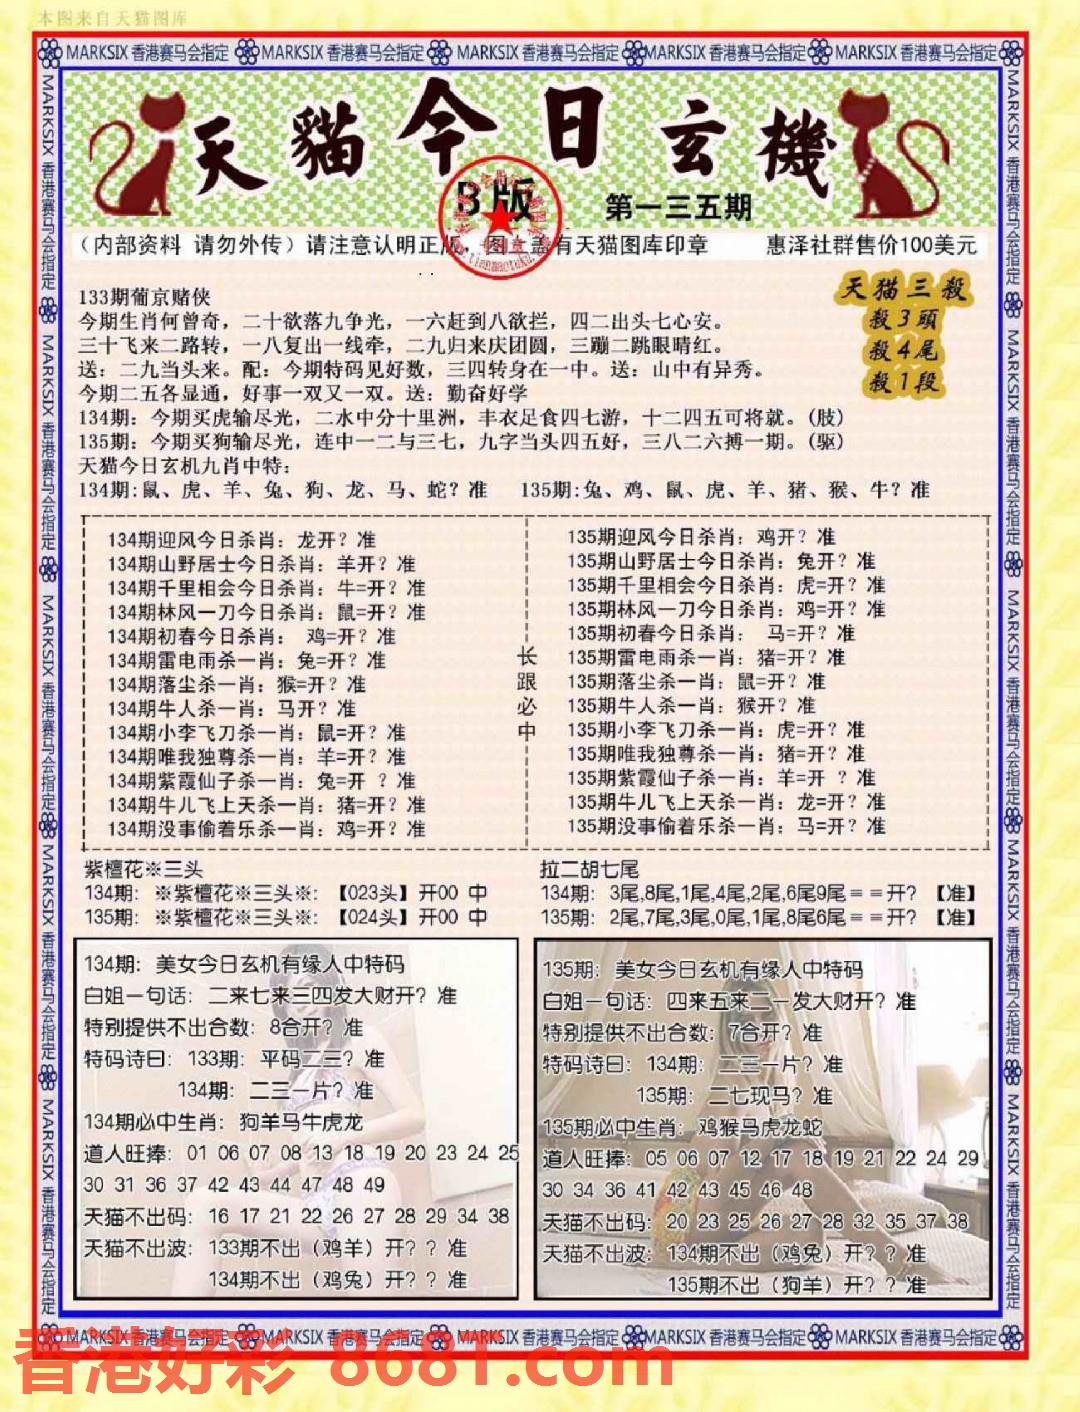 本图来自天猫图库
MARKSIX 香港赛马会指定 MARKSIX 香港赛马会指定 MARKSIX 香港赛马会指定 MARKSIX 香港赛马会指定 MARKSIX 香港赛马会指定
天貓今日玄機
B版
第一三五期
（内部资料 请勿外传）请注意认明正版，图上盖有天猫图库印章 惠泽社群售价100美元
天猫三殺
殺3頭
殺4尾
殺1段
133期葡京赌侠
今期生肖何曾奇，二十欲落九争光，一六赶到八欲拦，四二出头七心安。
三十飞来二路转，一八复出一线牵，二九归来庆团圆，三蹦二跳眼睛红。
送：二九当头来。配：今期特码见好数，三四转身在一中。送：山中有异秀。
今期二五各显通，好事一双又一双。送：勤奋好学
134期：今期买虎输尽光，二水中分十里洲，丰衣足食四七游，十二四五可将就。(肢）
135期：今期买狗输尽光，连中一二与三七，九字当头四五好，三八二六搏一期。(驱）
天猫今日玄机九肖中特：
134期:鼠、虎、羊、兔、狗、龙、马、蛇？准 135期:兔、鸡、鼠、虎、羊、猪、猴、牛？准
134期迎风今日杀肖：龙开？准
134期山野居士今日杀肖：羊开？准
134期千里相会今日杀肖：牛=开？准
134期林风一刀今日杀肖：鼠=开？准
134期初春今日杀肖： 鸡=开？准
134期雷电雨杀一肖：兔=开？准
134期落尘杀一肖：猴=开？准
134期牛人杀一肖：马开？准
134期小李飞刀杀一肖：鼠=开？准
134期唯我独尊杀一肖：羊=开？准
134期紫霞仙子杀一肖：兔=开 ？准
134期牛儿飞上天杀一肖：猪=开？准
134期没事偷着乐杀一肖：鸡=开？准
长跟必中
135期迎风今日杀肖：鸡开？准
135期山野居士今日杀肖：兔开？准
135期千里相会今日杀肖：虎=开？准
135期林风一刀今日杀肖：鸡=开？准
135期初春今日杀肖： 马=开？准
135期雷电雨杀一肖：猪=开？准
135期落尘杀一肖：鼠=开？准
135期牛人杀一肖：猴开？准
135期小李飞刀杀一肖：虎=开？准
135期唯我独尊杀一肖：猪=开？准
135期紫霞仙子杀一肖：羊=开 ？准
135期牛儿飞上天杀一肖：龙=开？准
135期没事偷着乐杀一肖：马=开？准
紫檀花※三头
134期：※紫檀花※三头※：【023头】开00 中
135期：※紫檀花※三头※：【024头】开00 中
拉二胡七尾
134期：3尾,8尾,1尾,4尾,2尾,6尾9尾＝＝开？【准】
135期：2尾,7尾,3尾,0尾,1尾,8尾6尾＝＝开？【准】
134期：美女今日玄机有缘人中特码
白姐一句话：二来七来三四发大财开？准
特别提供不出合数：8合开？准
特码诗曰：133期：平码二三？准
134期：二三一片？准
134期必中生肖：狗羊马牛虎龙
道人旺捧：01 06 07 08 13 18 19 20 23 24 25
30 31 36 37 42 43 44 47 48 49
天猫不出码：16 17 21 22 26 27 28 29 34 38
天猫不出波：133期不出（鸡羊）开？？准
134期不出（鸡兔）开？？准
135期：美女今日玄机有缘人中特码
白姐一句话：四来五来二一发大财开？准
特别提供不出合数：7合开？准
特码诗曰：134期：二三一片？准
135期：二七现马？准
135期必中生肖：鸡猴马虎龙蛇
道人旺捧：05 06 07 12 17 18 19 21 22 24 29
30 34 36 41 42 43 45 46 48
天猫不出码：20 23 25 26 27 28 32 35 37 38
天猫不出波：134期不出（鸡兔）开？？准
135期不出（狗羊）开？？准
MARKSIX 香港赛马会指定 MARKSIX 香港赛马会指定 MARKSIX 香港赛马会指定 MARKSIX 香港赛马会指定 MARKSIX 香港赛马会指定
香港好彩 8681.com